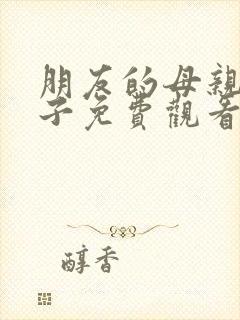 朋友的母親
子免費觀看
醇香